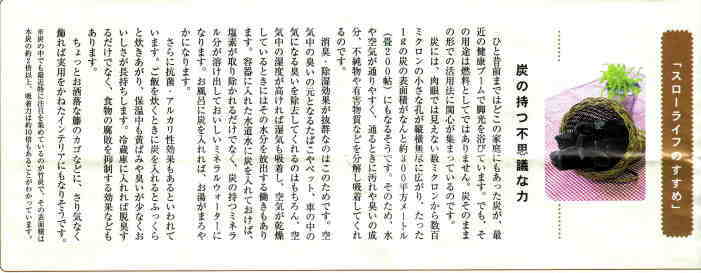 「スローライフのすすめ」
炭の持つ不思議な力
ひと昔前まではどこの家庭にもあった炭が、最
近の健康ブームで脚光を浴びています。でも、そ
の用途は燃料としてではありません。炭そのまま
の形での活用法に関心が集まっているのです。
炭には、肉眼では見えない数ミクロンから数百
ミクロンの小さな孔が縦横無尽に広がり、たった
1gの炭の表面積がなんと約300平方メートル
(畳200帖)にもなるそうです。そのため、水
や空気が通りやすく、通るときに汚れや臭いの成
分、不純物や有害物質などを分解し吸着してくれ
るのです。
消臭・除湿効果が抜群なのはこのためです。空
気中の臭いの元となるたばこやペット、車の中の
気になる臭いを除去してくれるのはもちろん、空
気中の湿度が高ければ湿気を吸着し、空気が乾燥
しているときにはその水分を放出する働きもあり
ます。容器に入れた水道水に炭を入れておけば、
塩素が取り除かれるだけでなく、炭の持つミネラ
ル分が溶け出しておいしいミネラルウォーターに
なります。お風呂に炭を入れれば、お湯がまろや
かになります。
さらに抗菌・アルカリ性効果もあるといわれて
います。ご飯を炊くときに炭を入れるとふっくら
と炊きあがり、保温中も黄ばみや臭いが少なくお
いしさが長持ちします。冷蔵庫に入れれば脱臭す
るだけでなく、食物の腐敗を抑制する効果なども
あります。
ちょっとお洒落な籐のカゴなどに、さり気なく
飾れば実用をかねたインテリアにもなりそうです。
※炭の中でも最近特に注目を集めているのが竹炭で、その表面積は
木炭の約2倍以上、吸着力は約10倍もあることがわかっています。